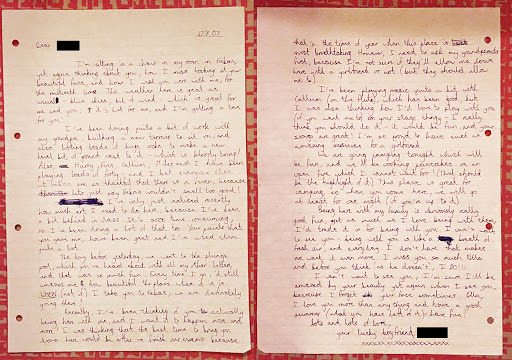 17.8.07
Dear
I'm sitting in a chair in my room in
yet again thinking about you, how I miss looking at your
beautiful face, and how I wish you were with me, for
the millionth time. The weather here is great as
usual blue skies, bit of wind - which is great for
me and you, it's hot for me, and I'm getting a tan
for you!
I've been doing quite a bit of work with
my grandpa, building us a terrace to eat on and
also lifting loads of huge rocks to make a new
level bit of ground next to it - which is bloody tiring!
Also, Harry, Finn, Callum, Mike and I have been
playing loads of forty-and I bet everyone else
in are so thankful that there is a river, because
lets just say boys don't smell too good!
I've only just realised recently
how much art I need to do here, because I've been
put behind in class due to some time
so I've been doing a lot of that too. Your pencils that
you gave me, have been great and I've used them
quite a lot.
The day before yesterday, we went to the plunge
pool, which you've heard about with all my other letters,
and that was so much fun. Every time I go, it still
amazes me how beautiful the place when it is
when (not if) I take you to, we are definitely
going there!
Recently I'm been thinking of you actually
being here with me, and I want it to happen more and
more! I was thinking that the best time to bring you
down here would be after in
that's the time of year when this place is
most breathtaking. However, I need to ask my grandparents
first, because I'm not sure if they'll allow me down
here with a girlfriend or not (but they should allow
me to).
I've been playing music quite a bit with
Callum (on the flute), which has been good but
I was also thinking for I'd stay with you
(if you want me to) on your stage thingy - I really
think you should do it - it would be fun, and your
voice are great! I'm so proud to have such an
amazing musician for a girlfriend.
We are going camping tonight which will
be fun, and we'll be cooking pancakes on an
open fire, which I cannot wait for! (That should
be the highlight of it) This place is great for
camping, so when you come here, we will go
at least for one night (if you're up to it).
Being here with my family is obviously really
good fun, but as much as I love being with them,
I'd trade it in for being with you. I can't wait
to see you - being with you is like a breath of
fresh air, and everyday I don't have that makes
me want it even more. I miss you so much Ella
and before you think no he doesn't, I DO!!!
I can't wait to see you, I'm sure I'll be
amazed by your beauty yet again when I see you,
because I forget your face sometimes. Ella,
I love you more than anything and have a good
summer (what you have left of it), have fun!
lots and lots of love
your lucky boyfriend